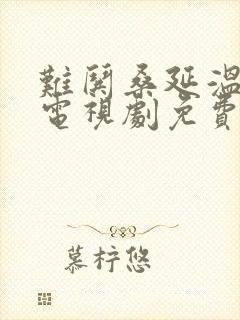 難鬨桑延溫
電視劇免費
慕梓悠